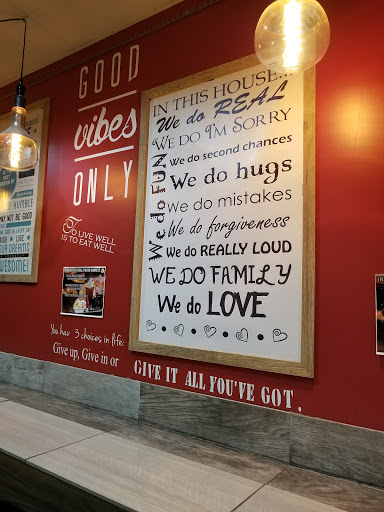 GOOD
vibes
ONLY
TO LIVE WELL
IS TO EAT WELL
IN THIS HOUSE...
We do REAL
WE DO I'M SORRY
We do FUN
We do second chances
We do hugs
We do mistakes
We do forgiveness
We do REALLY LOUD
WE DO FAMILY
We do LOVE
You have 3 choices in life:
Give up, Give in or
GIVE IT ALL YOU'VE GOT.
NOT BE GOOD
LOVE
DREAMS
AWESOME!